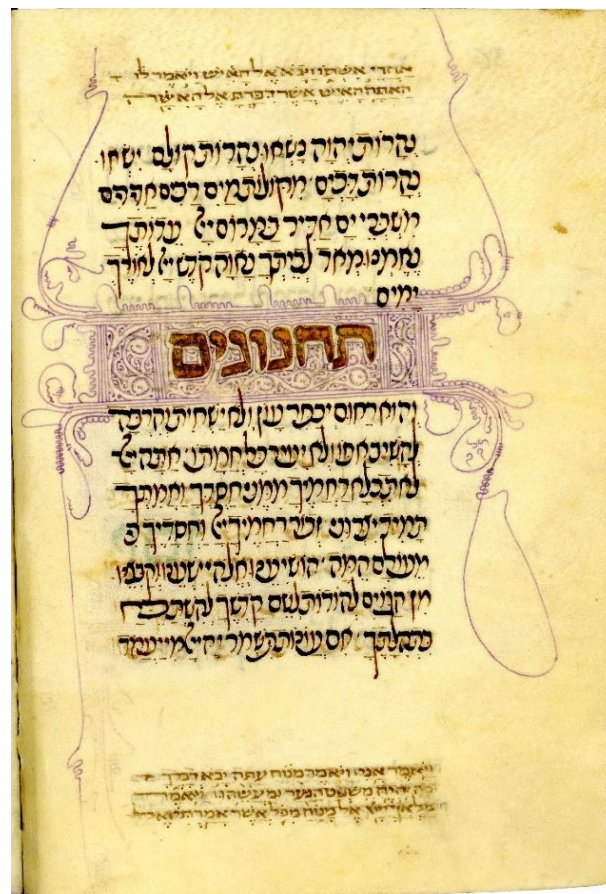 אחרי אשתו ויבא אל האיש ויאמר לו
האתה האיש אשר דברת אל האישה
נהרות יהוה נשאו נהרות קולם ישאו
נהרות דכים מקולות מים רבים אדירים
משברי ים אדיר במרום יי עדותיך
נאמנו מאד לביתך נאוה קדש יי לאורך
ימים
תחנונים
והוא רחום יכפר עון ולא ישחית והרבה
להשיב אפו ולא יעיר כל חמתו אתה יי
לא תכלא רחמיך ממנו חסדך ואמתך
תמיד יצרונו זכר רחמיך יי וחסדיך כ
מעולם המה הושיענו אלהי ישענו וקבצנו
מן הגוים להודות לשם קדשך להשתבח
בתהלתך אם עונות תשמר יה יי מי יעמד
ויאמר אני ויאמר מנוח עתה יבא דבריך
מה יהיה משפט הנער ומעשהו ויאמר
מלאך יי אל מנוח מכל אשר אמרתי אל